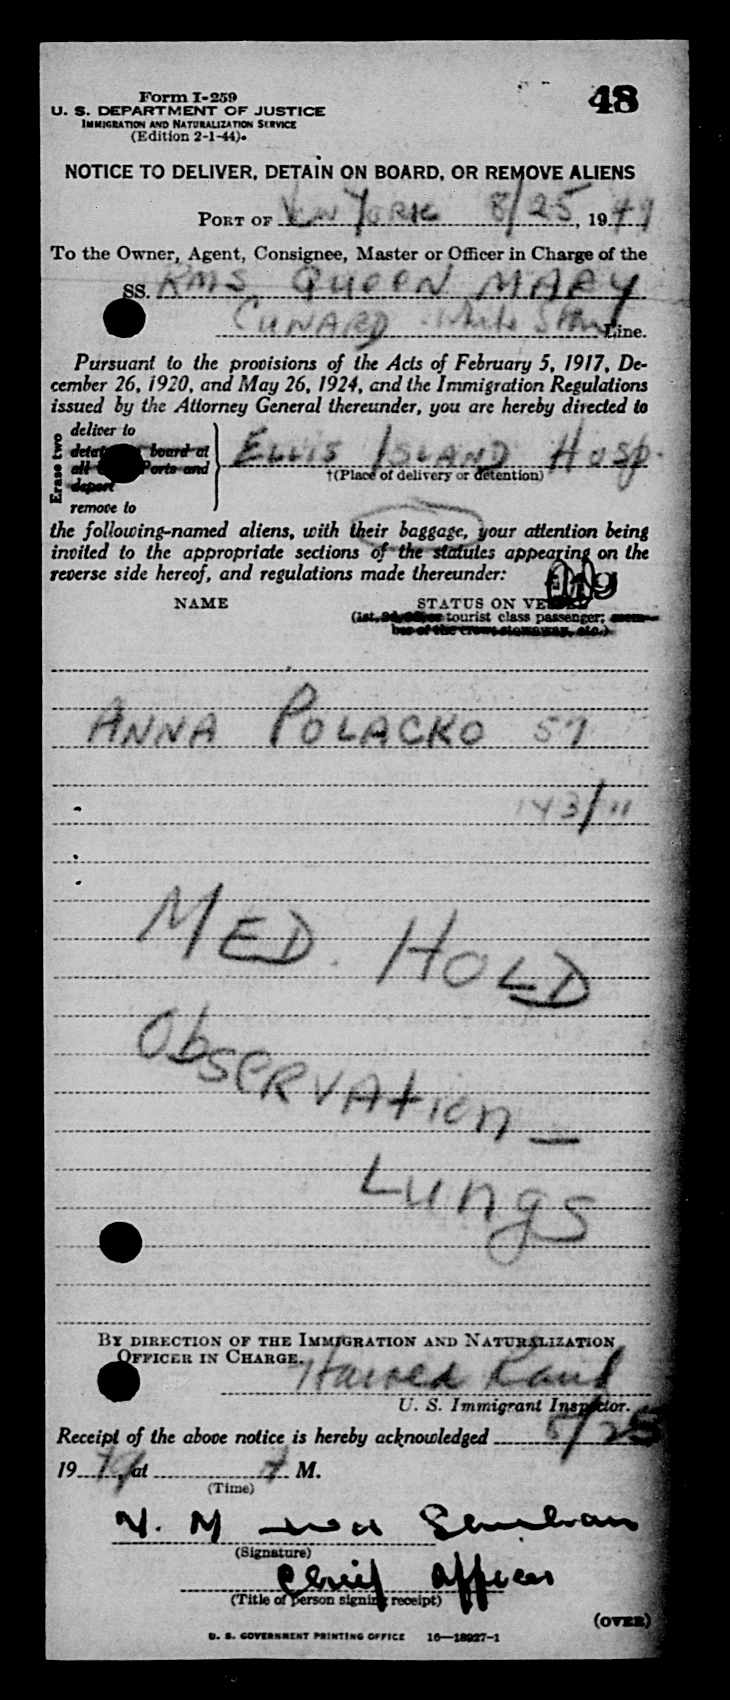 48
Form I-259
U. S. DEPARTMENT OF JUSTICE
IMMIGRATION AND NATURALIZATION SERVICE
(Edition 2-1-44).
NOTICE TO DELIVER, DETAIN ON BOARD, OR REMOVE ALIENS
PORT OF New York 8/25, 1949
To the Owner, Agent, Consignee, Master or Officer in Charge of the
SS. RMS QUEEN MARY
CUNARD White Star Line.
Pursuant to the provisions of the Acts of February 5, 1917, De-
cember 26, 1920, and May 26, 1924, and the Immigration Regulations
issued by the Attorney General thereunder, you are hereby directed to
Erase two
deliver to
board at
all Ports and
deport
remove to
ELLIS ISLAND Hosp.
†(Place of delivery or detention)
the following-named aliens, with their baggage, your attention being
invited to the appropriate sections of the statutes appearing on the
reverse side hereof, and regulations made thereunder:
NAME
STATUS ON VESSEL
(1st, tourist class passenger; mem-
ber of the crew, stowaway, etc.)
ANNA POLACKO 57
143/11
MED. HOLD
ObSERVAtion —
Lungs
BY DIRECTION OF THE IMMIGRATION AND NATURALIZATION
OFFICER IN CHARGE.
U. S. Immigrant Inspector.
Receipt of the above notice is hereby acknowledged 8/25
19 49, at M.
(Time)
(Signature)
Chief Officer
(Title of person signing receipt)
(OVER)
U. S. GOVERNMENT PRINTING OFFICE 16—18927-1